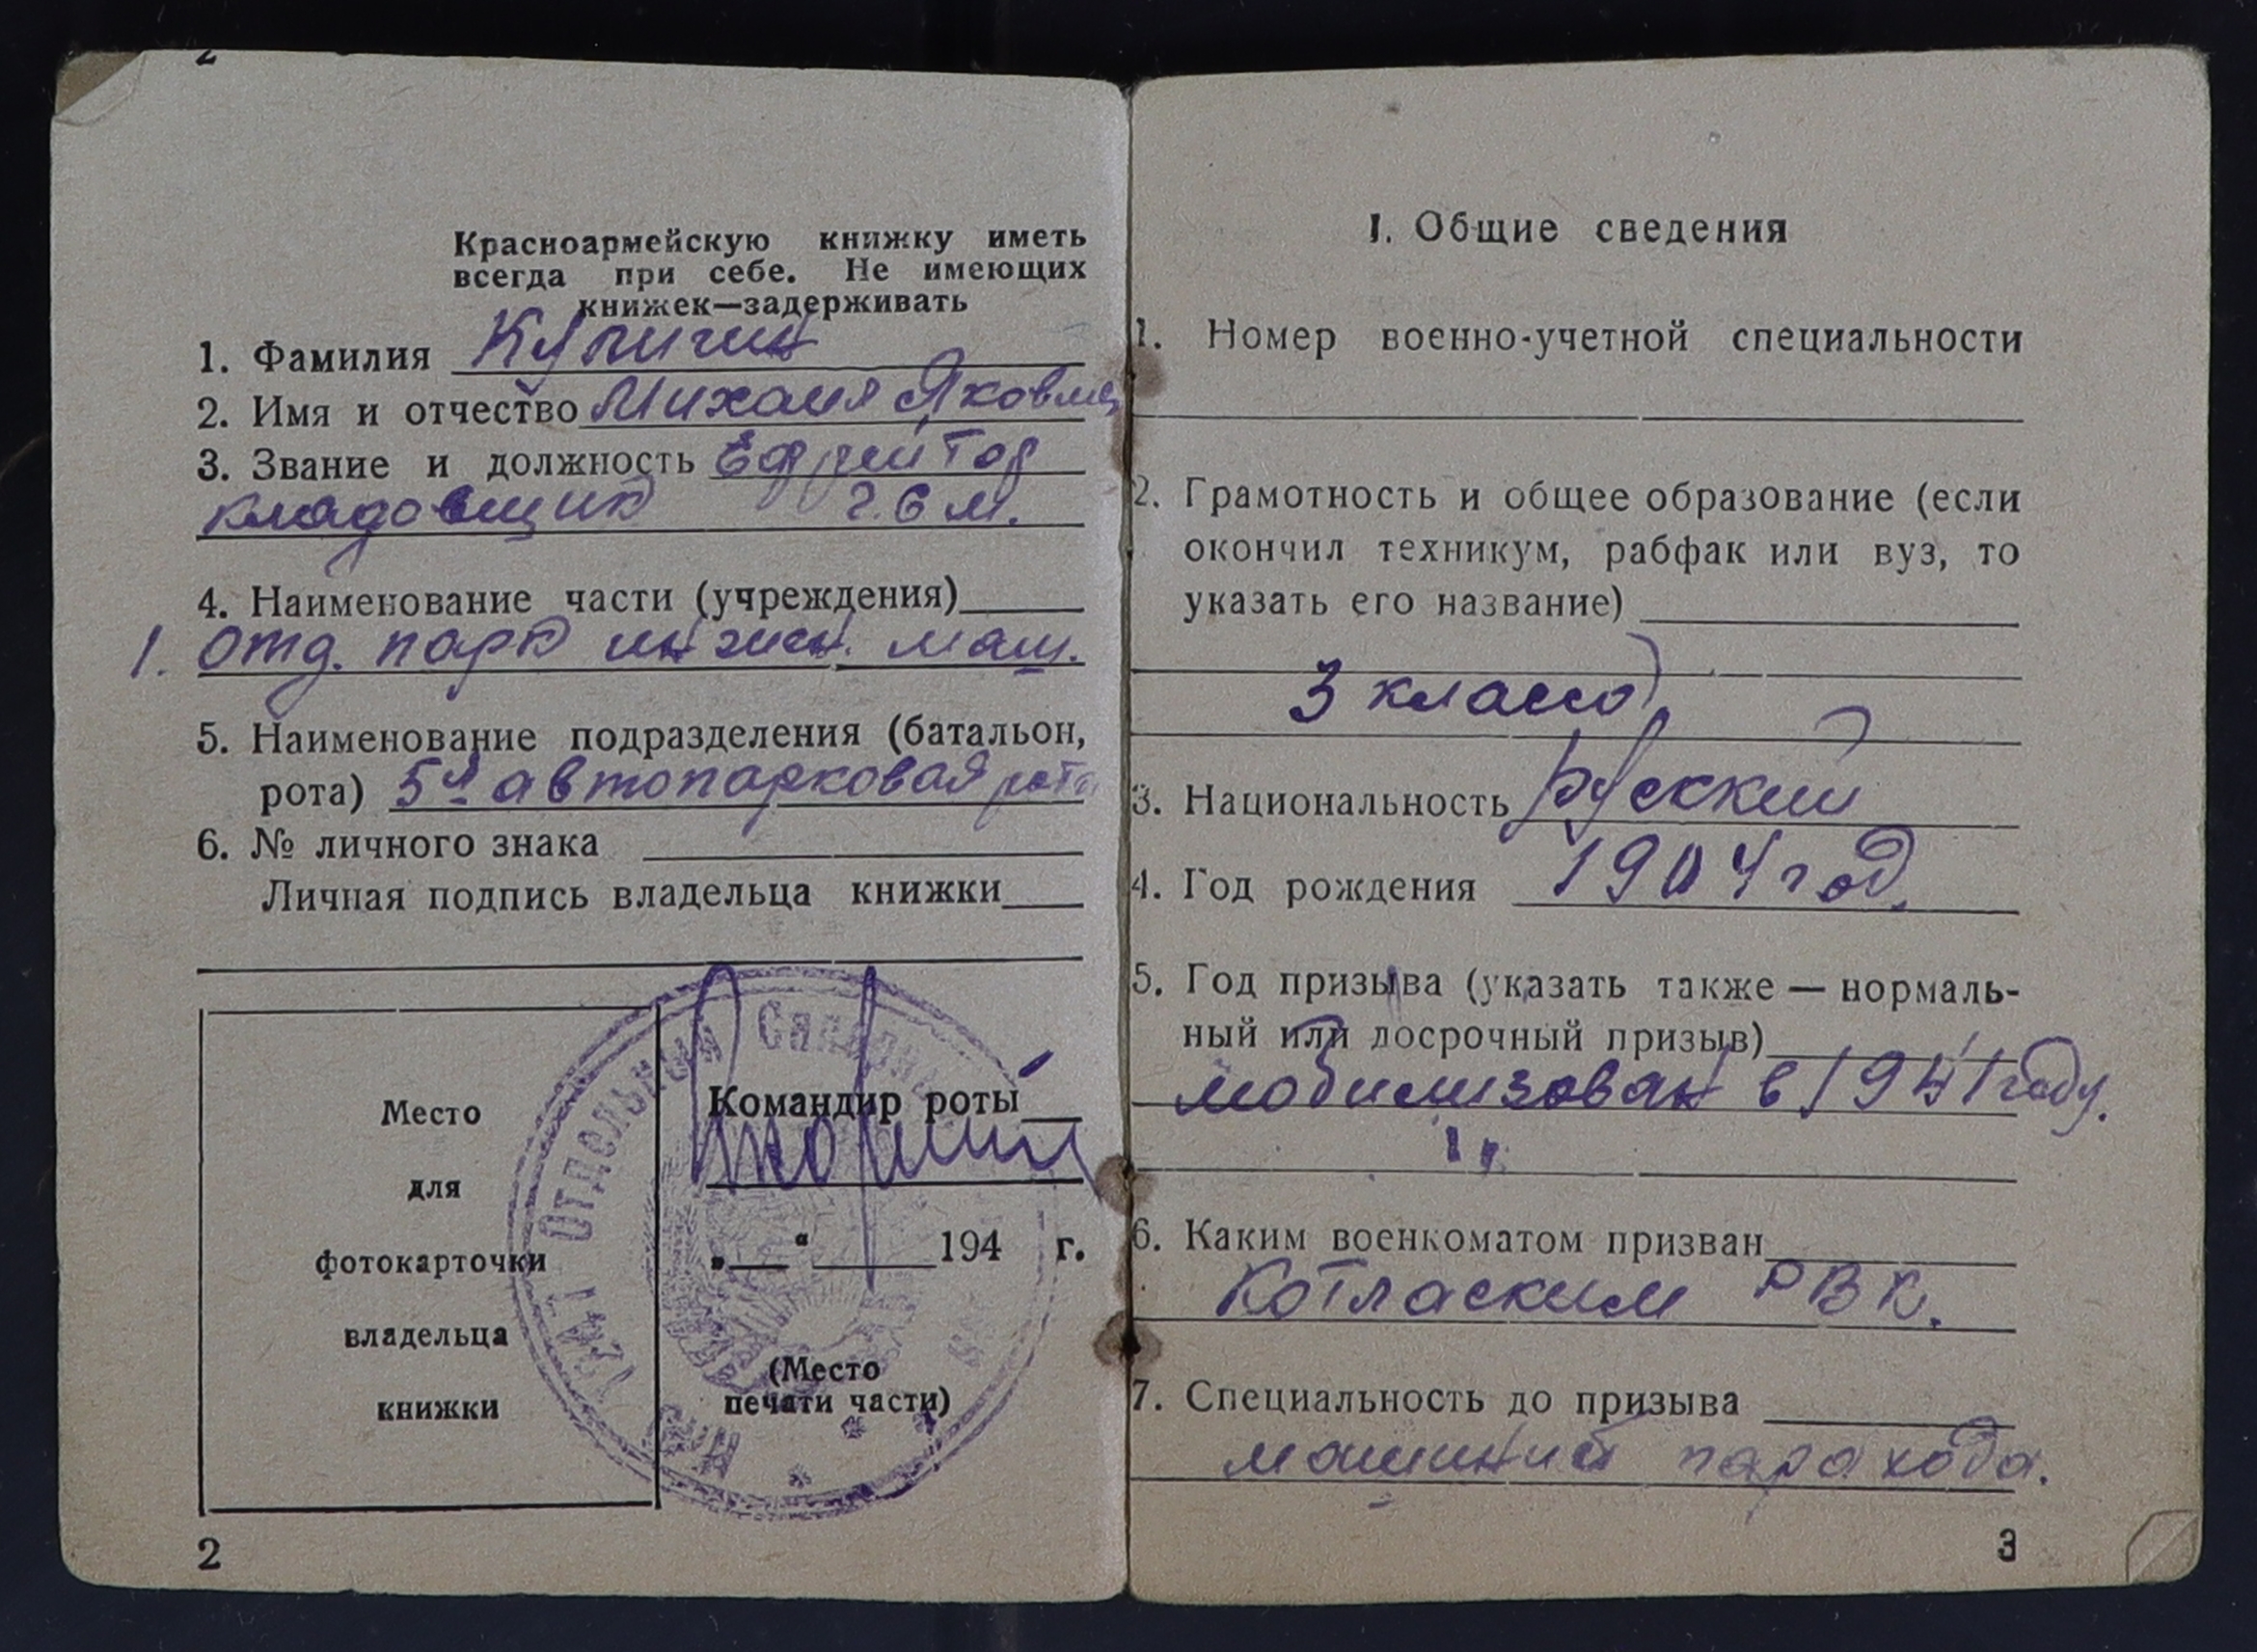 Красноармейскую книжку иметь
всегда при себе. Не имеющих
книжек—задерживать
1. Фамилия Купичин
2. Имя и отчество Михаил Яковлев
3. Звание и должность Ефрейтор
кладовщик г.с м.
4. Наименование части (учреждения)
1. отд. парк инжен. маш.
5. Наименование подразделения (батальон,
рота) 5я автопарковая рота
6. № личного знака
Личная подпись владельца книжки
Место
для
фотокарточки
владельца
книжки
Командир роты
„ “ 194 г.
(Место
печати части)
2
I. Общие сведения
1. Номер военно-учетной специальности
2. Грамотность и общее образование (если
окончил техникум, рабфак или вуз, то
указать его название)
3 класса
3. Национальность русский
4. Год рождения 1904 год.
5. Год призыва (указать также — нормаль-
ный или досрочный призыв)
мобилизован в 1941 году.
6. Каким военкоматом призван
Котласким РВК.
7. Специальность до призыва
машинист парахода.
3